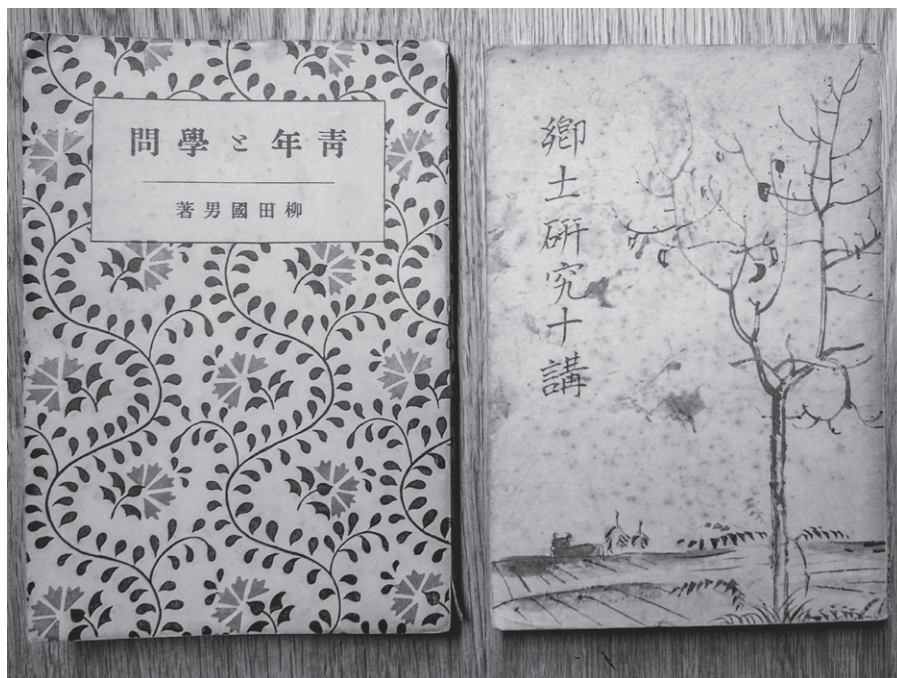 靑年と學問
柳田國男著
鄕土硏究十講